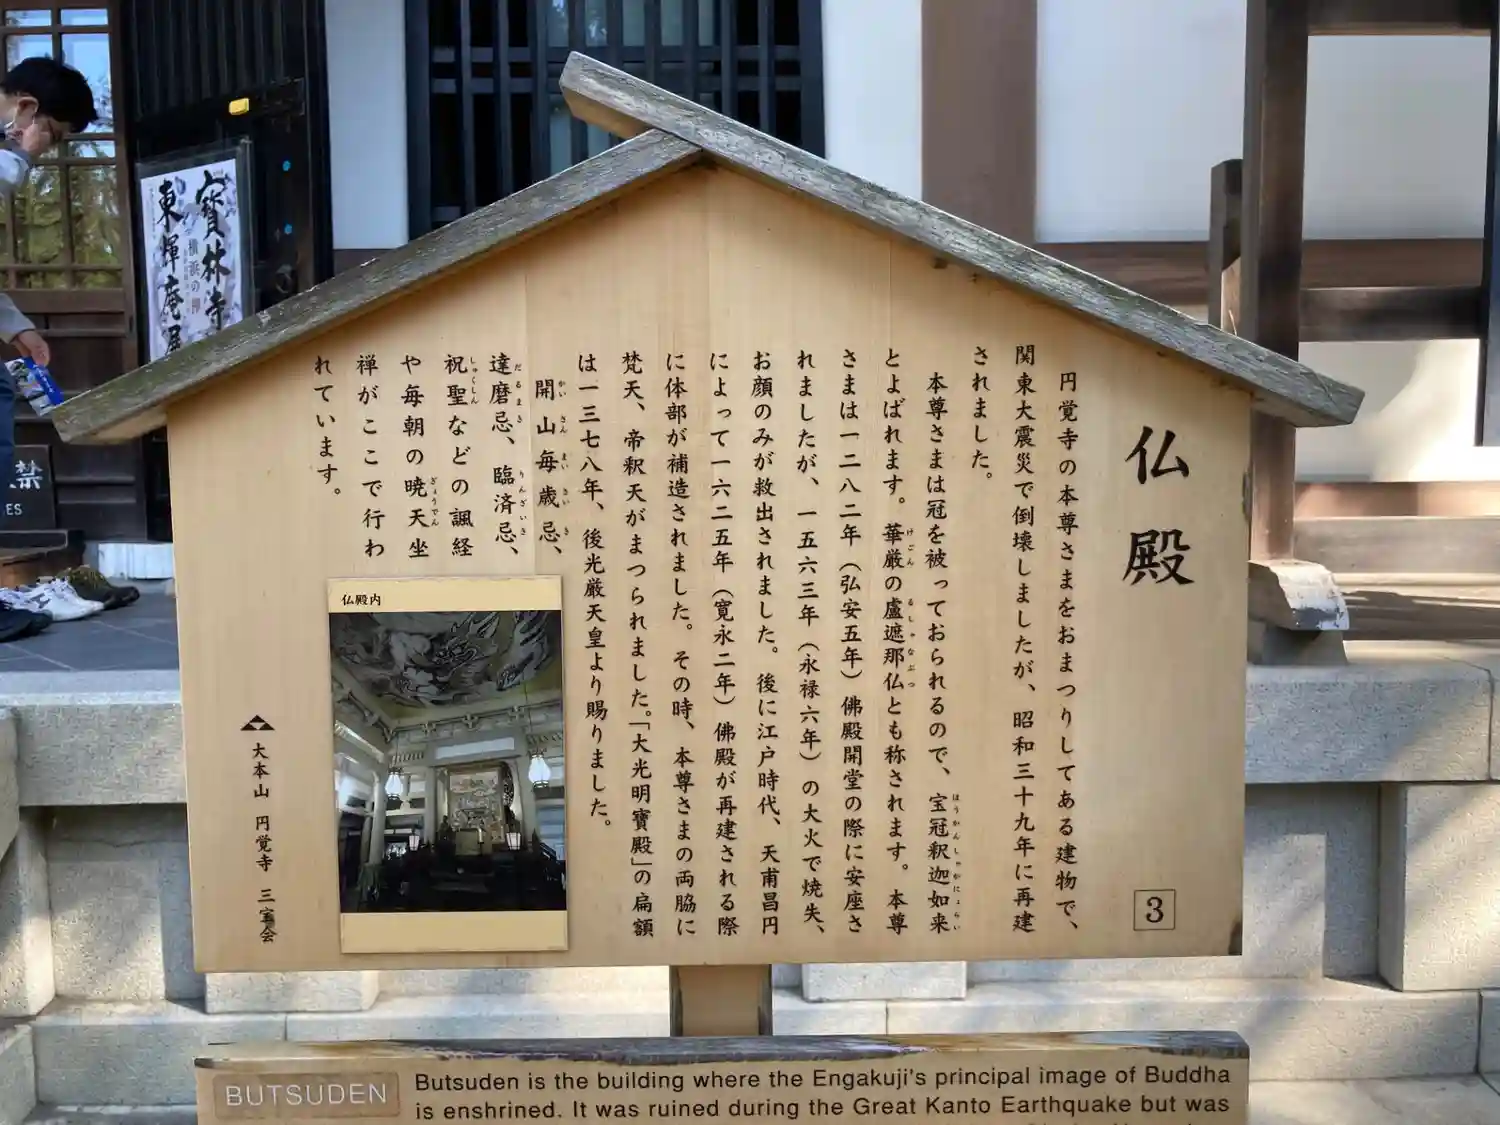 仏殿
円覚寺の本尊さまをおまつりしてある建物で、
関東大震災で倒壊しましたが、昭和三十九年に再建
されました。
本尊さまは冠を被っておられるので、宝冠釈迦如来
ほうかんしゃかにょらい
とよばれます。華厳の盧遮那仏とも称されます。本尊
けごん
るしゃなぶつ
さまは一二八二年(弘安五年)佛殿開堂の際に安座さ
れましたが、一五六三年(永禄六年)の大火で焼失、
お顔のみが救出されました。後に江戸時代、天甫昌円
によって一六二五年(寛永二年)佛殿が再建される際
に体部が補造されました。その時、本尊さまの両脇に
梵天、帝釈天がまつられました。「大光明寶殿」の扁額
は一三七八年、後光厳天皇より賜りました。
開山毎歳忌、
かいさんまいさいき
達磨忌、臨済忌、
だるまき
りんざいき
祝聖などの諷経
しゅくしん
や毎朝の暁天坐
ぎょうてん
禅がここで行わ
れています。
仏殿内
大本山 円覚寺 三宝会
3
BUTSUDEN
Butsuden is the building where the Engakuji's principal image of Buddha
is enshrined. It was ruined during the Great Kanto Earthquake but was
寶林寺
横浜の禅
東輝庵展
禁
ES